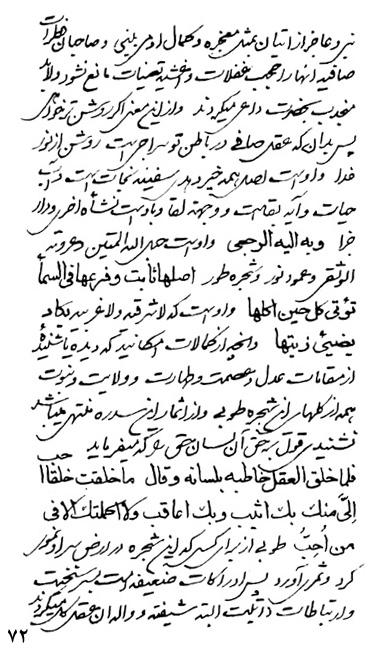 نبی و عاجز از اتیان بمثل معجزه و کمال اومی بلغی و صاحبان فطرات
صافیه انها را حجب غفلات و اغشیه تعینات مانع نشود و لابد
منجذب بحضرت داعی میکردند و از این معنی اگر روشن تر خواهی
پس بدان که عقل صافی در باطن تو سراجی است روشن از نور
خدا و اوست اصل همه خیر و هدی سفینه نجات است و آب
حیات و آیه بقاست و وجهه لقا و بادیت نشأه اخری و دار
جزا و به الیه الرجعی و اوست حبل الله المتین و عروته
الوثقی و عمود نور و شجره طور اصلها ثابت و فرعها فی السمآ
تؤتی کل حین اکلها و اوست که لا شرقیه و لا غربیه یکاد
یضیئ زیتها و انچه از کمالات امکانیه که دیده یا شنیده
از مقامات عدل و عصمت و طهارت و ولایت و نبوت
همه از کلهای این شجره طوبی و از اثمار این سدره منتهی میباشد
نشنیدی قول بر حق آن لسان حق را که میفرماید
فلما خلق العقل خاطبه بلسانه و قال ما خلقت خلقا احب
الی منك بك اثیب و بك اعاقب و لا اکملتك الا فی
من أحبُّ طوبی از برای کسی که این شجره در ارض سر او نمو
کرد و ثمر آورد پس ادراکات ضعیفه که است بسر سنخیت
و ارتباطات ذاتیت البته شیفته و واله ان عقل کل میکردند
۷۲